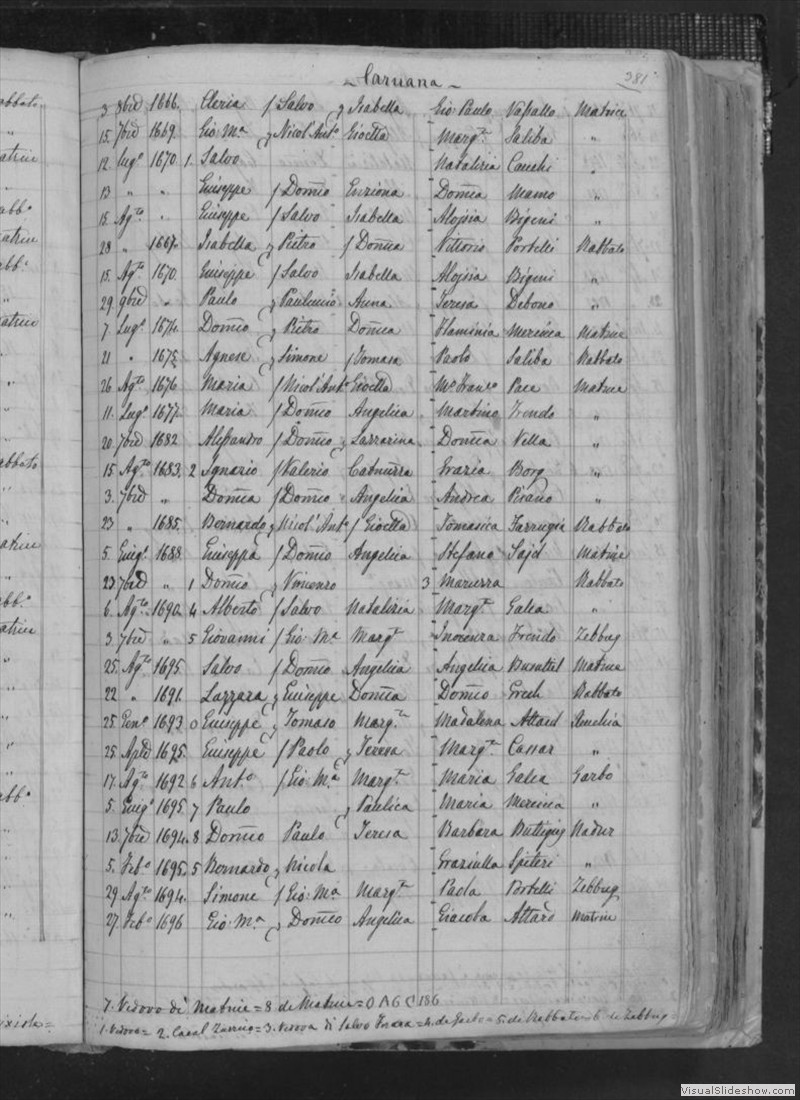 Caruana
381
3. 8bre 1666. Cleria / Salvo y Isabella Gio Paulo Vassallo Matrice
15. 7bre 1669. Gio Mª y Nicol'Antº Gioetta Margta Saliba "
12. Lugº 1670. 1. Salvo Natalizia Cauchi "
13 " " Giuseppe / Domco Enziona Domca Mamo "
15. Agto " Giuseppe / Salvo Isabella Aloisia Bigeni "
28 " 1667. Isabella y Pietro / Domca Vittorio Portelli Rabbato
15. Agto 1670. Giuseppe / Salvo Isabella Aloisia Bigeni "
29. 9bre " Paulo y Anna Teresa Debono "
7. Lugº 1674. Domco y Pietro Domca Flaminia Mericca Matrice
21 " 1675 Agnese y Simone / Tomasa Paolo Saliba Rabbato
26 Agto 1676. Maria / Nicol'Antº Gioetta Mº Francº Pace Matrice
11. Lugº 1677. Maria / Domco Angelica Martino Trendo "
20. 7bre 1682 Alessandro / Domco y Domca Vella "
15 Agto 1683. 2 Ignazio / Valerio Grazia Borg "
3. 7bre " Domca / Domco Angelica Andrea Pisano "
23 " 1685. Bernardo y Nicol'Antº / Gioetta Tomasica Farrugia Rabbato
5. Giugº 1688. Giuseppa / Domco Angelica Stefano Sajd Matrice
23 7bre " 1 Domco y Vincenzo 3 Maruzza Rabbato
6. Agto 1690. 4 Alberto / Salvo Natalizia Margta Galea "
3. 7bre " 5 Giovanni / Gio: Mª Margta Inocenza Trendo Zebbug
25. Agto 1695 Salvo / Domco Angelica Angelica Busuttil Matrice
22 " 1691. Lazzara y Giuseppe Domca Domco Grech Rabbato
25. Genº 1693 0 Giuseppe y Tomaso Margta Madalena Attard
25 Aple 1695. Giuseppe / Paolo y Teresa Margta Cassar "
17. Agto 1692 6 Antº / Gio: Mª Margta Maria Galea Garbo
5. Giugº 1695. 7 Paulo y Paulica Maria Mericca "
13. 7bre 1694. 8 Domco Paulo Teresa Barbara Buttigieg Nadur
5. Febº 1695. 5 Bernardo y Nicola Graziulla Spiteri "
29. Agto 1694. Simone / Gio: Mª Margta Paola Portelli Zebbug
27. Febº 1696 Gio: Mª y Domco Angelica Giacoba Attard Matrice
7. Vedovo di Matrice = 8 de Matrice = O A G C 186
1. Vedovo = 2. Casal = 3. Vedova di Salvo = 4. de Garbo = 5. de Rabbato = 6 de Zebbug =
VisualSlideshow.com